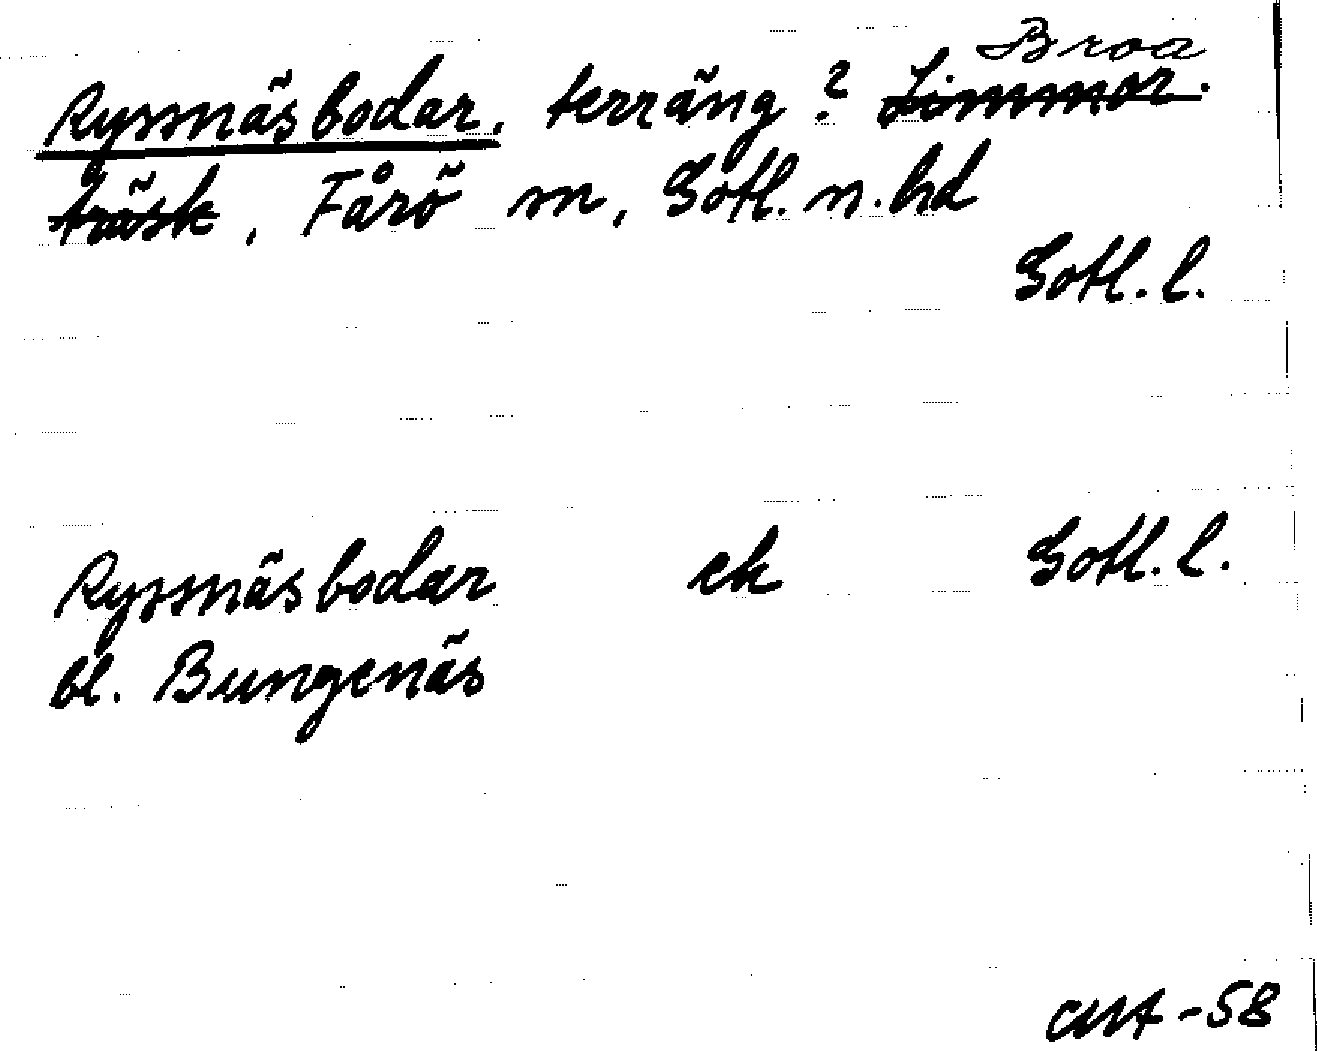 Broa
Ryssnäsbodar, terräng? Limmor-
träsk, Fårö sn, Gotl. n. hd
Gotl. l.
Ryssnäsbodar ek Gotl. l.
bl. Bungenäs
-58